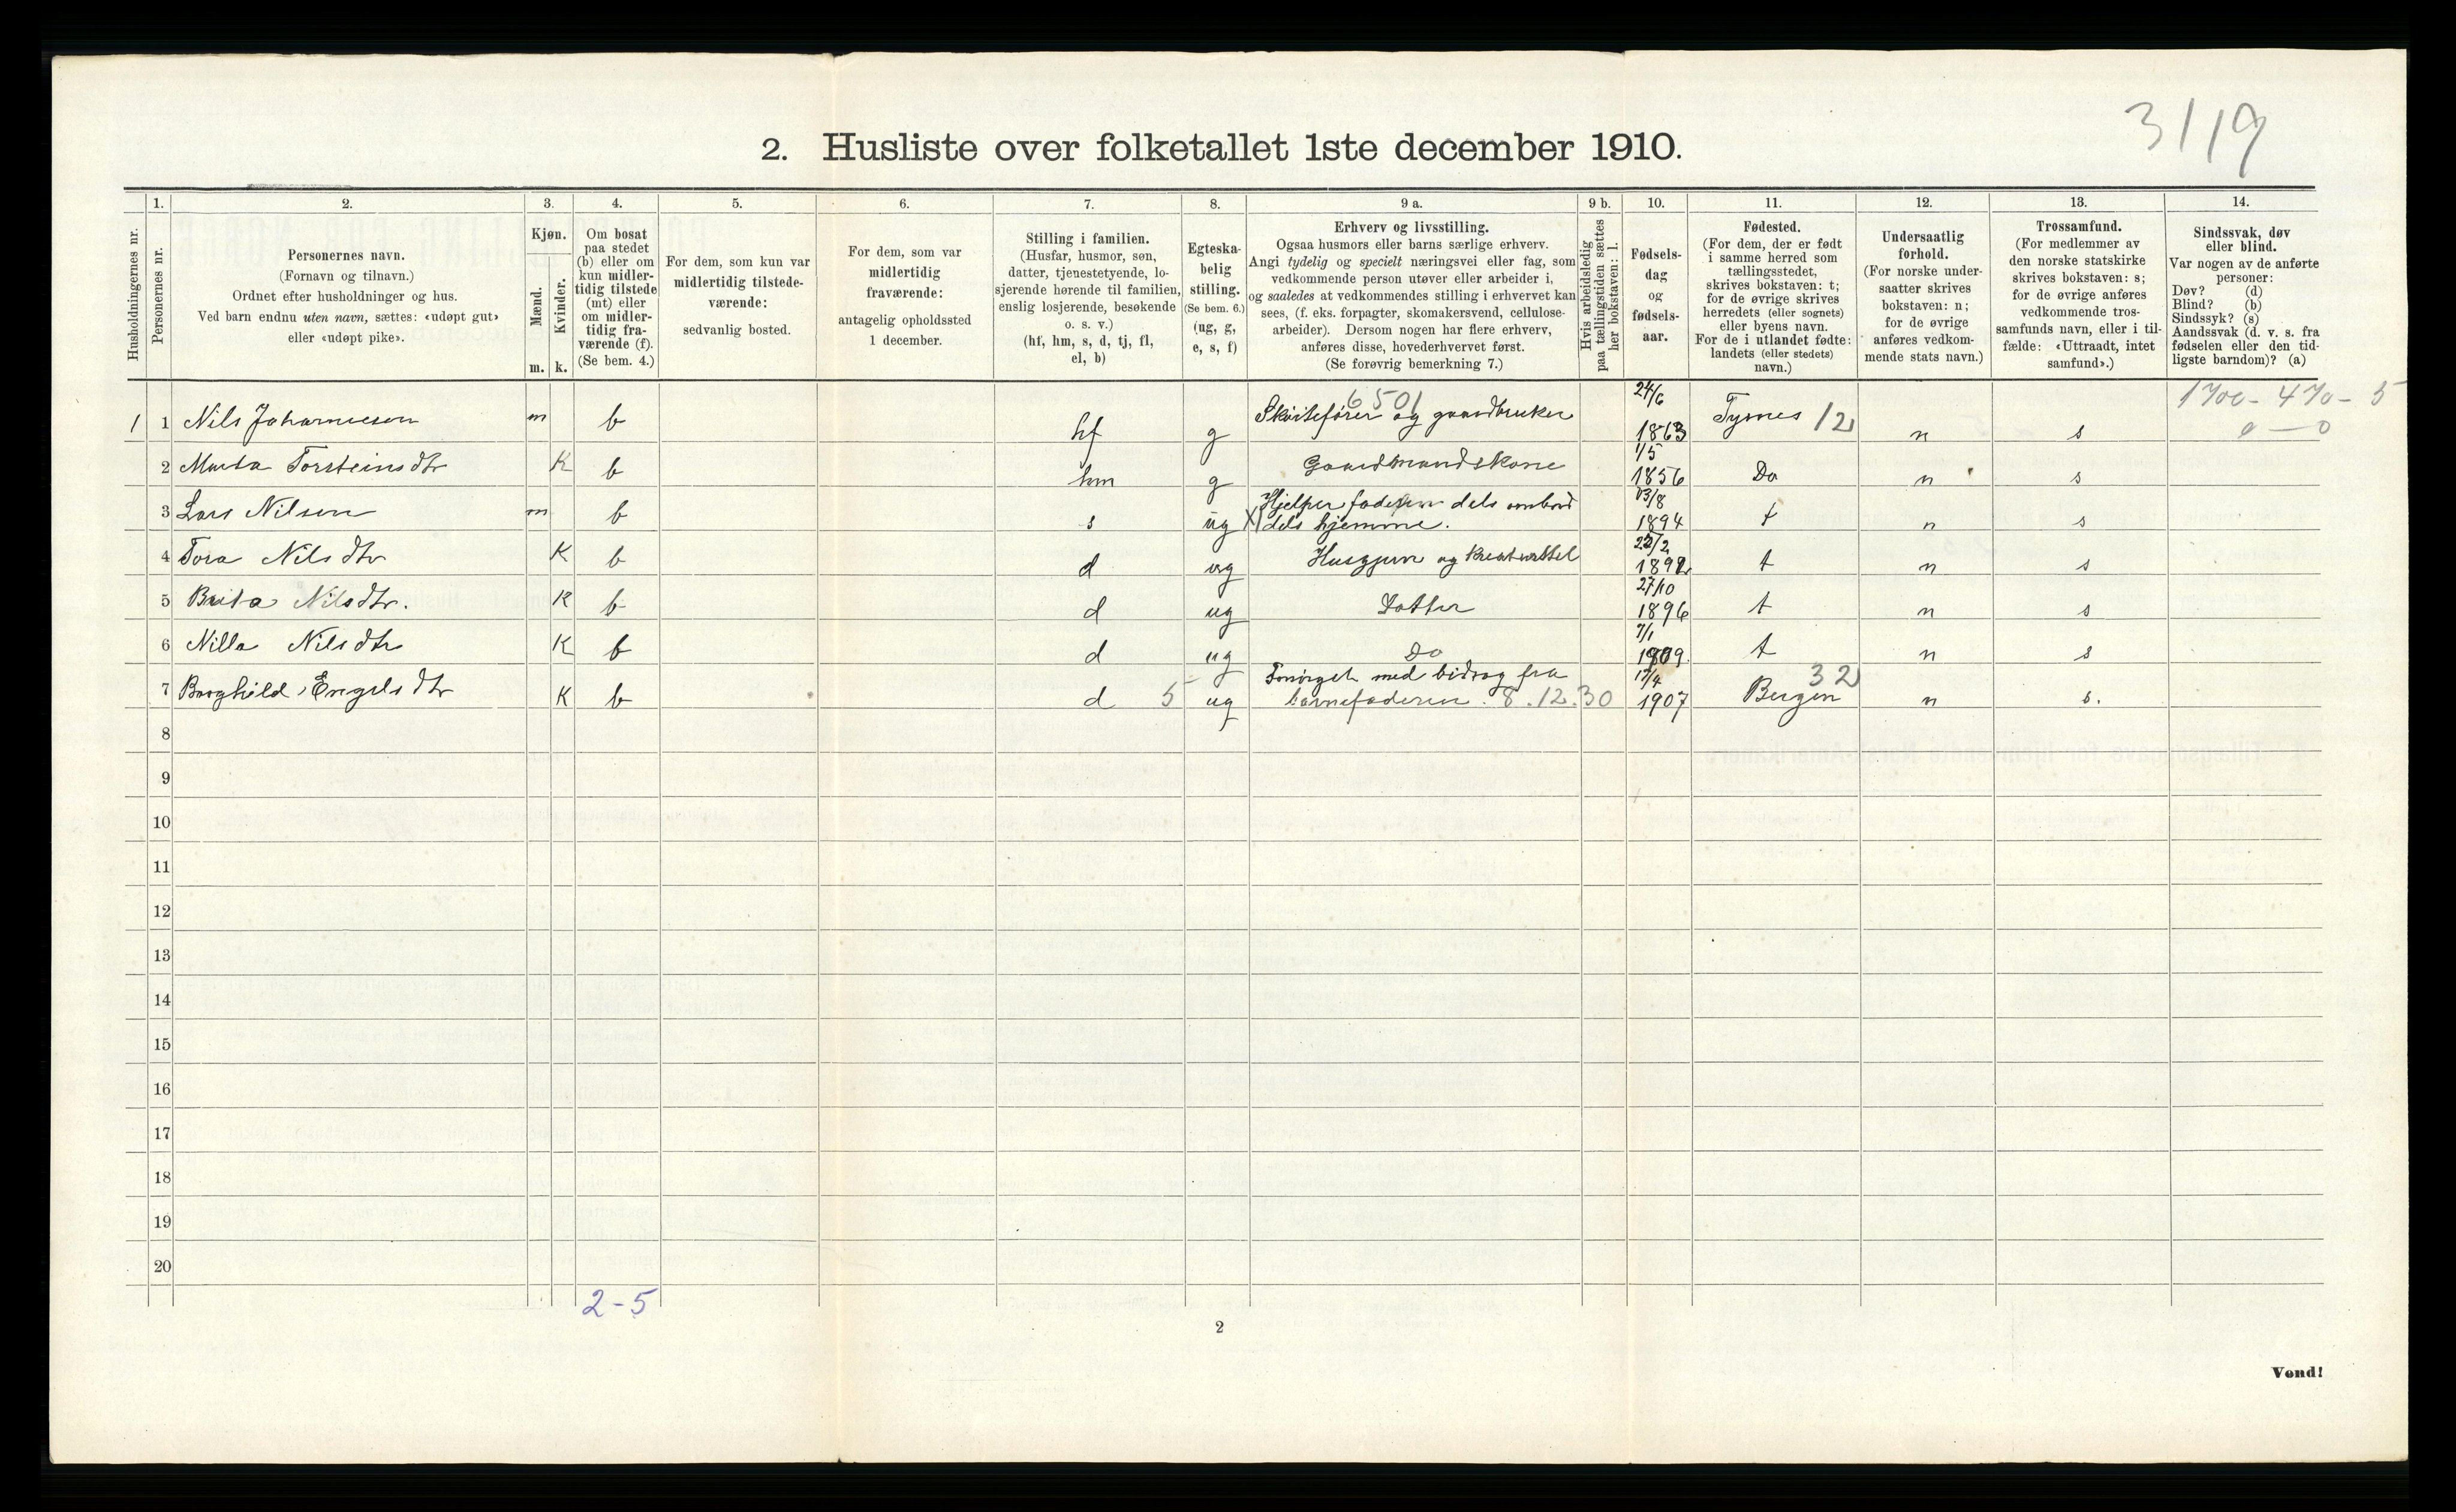 3119
2. Husliste over folketallet 1ste december 1910.
1. 2. 3. 4. 5. 6. 7. 8. 9 a. 9 b. 10. 11. 12. 13. 14.
Husholdningernes nr.
Personernes nr.
Personernes navn.
(Fornavn og tilnavn.)
Ordnet efter husholdninger og hus.
Ved barn endnu uten navn, sættes: «udøpt gut»
eller «udøpt pike».
Kjøn.
Mænd.
Kvinder.
m. k.
Om bosat
paa stedet
(b) eller om
kun midler-
tidig tilstede
(mt) eller
om midler-
tidig fra-
værende (f).
(Se bem. 4.)
For dem, som kun var
midlertidig tilstede-
værende:
sedvanlig bosted.
For dem, som var
midlertidig
fraværende:
antagelig opholdssted
1 december.
Stilling i familien.
(Husfar, husmor, søn,
datter, tjenestetyende, lo-
sjerende hørende til familien,
enslig losjerende, besøkende
o. s. v.)
(hf, hm, s, d, tj, fl,
el, b)
Egteska-
belig
stilling.
(Se bem. 6.)
(ug, g,
e, s, f)
Erhverv og livsstilling.
Ogsaa husmors eller barns særlige erhverv.
Angi tydelig og specielt næringsvei eller fag, som
vedkommende person utøver eller arbeider i,
og saaledes at vedkommendes stilling i erhvervet kan
sees, (f. eks. forpagter, skomakersvend, cellulose-
arbeider). Dersom nogen har flere erhverv,
anføres disse, hovederhvervet først.
(Se forøvrig bemerkning 7.)
Hvis arbeidsledig
paa tællingstiden sættes
her bokstaven: l.
Fødsels-
dag
og
fødsels-
aar.
Fødested.
(For dem, der er født
i samme herred som
tællingsstedet,
skrives bokstaven: t;
for de øvrige skrives
herredets (eller sognets)
eller byens navn.
For de i utlandet fødte:
landets (eller stedets)
navn.)
Undersaatlig
forhold.
(For norske under-
saatter skrives
bokstaven: n;
for de øvrige
anføres vedkom-
mende stats navn.)
Trossamfund.
(For medlemmer av
den norske statskirke
skrives bokstaven: s;
for de øvrige anføres
vedkommende tros-
samfunds navn, eller i til-
fælde: «Uttraadt, intet
samfund».)
Sindssvak, døv
eller blind.
Var nogen av de anførte
personer:
Døv? (d)
Blind? (b)
Sindssyk? (s)
Aandssvak (d. v. s. fra
fødselen eller den tid-
ligste barndom)? (a)
6501 24/6 1700 - 470 - 5
1 1 Nils Johannesen m b hf g Skøitefører og gaardbruker 1863 Tysnes 12 n s 0 — 0
1/5
2 Marta Torsteinsdtr K b hm g Gaardmandskone 1856 Do n s
Hjelper faderen dels ombord 13/8
3 Lars Nilsen m b s ug X dels hjemme. 1894 t n s
22/2
4 Tora Nilsdtr K b d ug Husgjern og kreaturstel 1892 t n s
27/10
5 Brita Nilsdtr. K b d ug Datter 1896 t n s
7/1
6 Nilla Nilsdtr K b d ug Do 1909 t n s
Forsørget med bidrag fra 17/4 32
7 Borghild Engelsdtr K b d 5 ug barnefaderen. 8.12.30 1907 Bergen n s.
8
9
10
11
12
13
14
15
16
17
18
19
20
2-5
2
Vend!